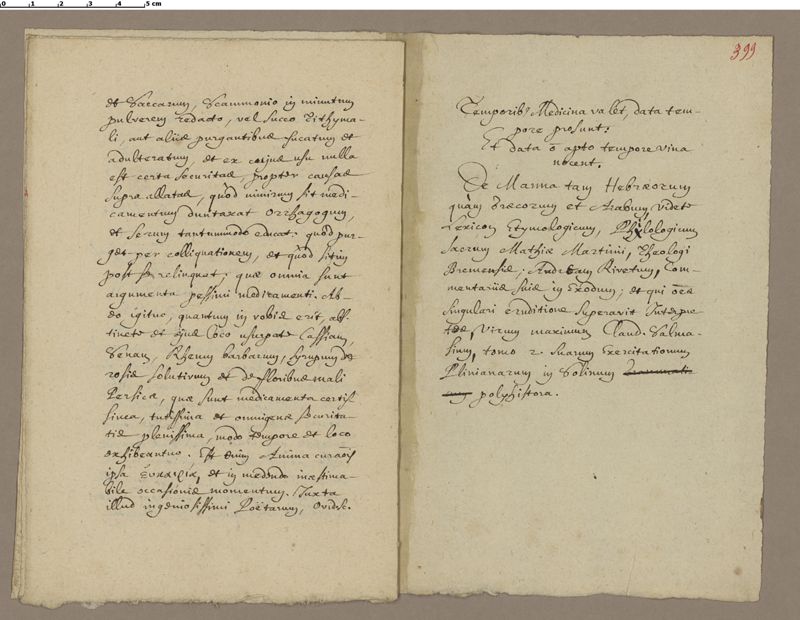 0 1 2 3 4 5 cm
et Saccarum, Scammonio in minutum
pulverem redacto, vel succo Tithyma-
li, aut aliis purgantibus fucatum et
adulteratum, et ex cujus usu nulla
est certa securitas, propter causas
supra allatas, quòd nimirum sit medi-
camentum duntaxat orrhagogum,
et serum tantummodo educat: quòd pur-
get per colliquationem, et quòd sitim
post se relinquat: quæ omnia sunt
argumenta pessimi medicamenti. Ab-
eo igitur, quantum in vobis erit, abs-
tinete et ejus loco usurpate Cassiam,
Senam, Rheum barbarum, syrupum de
rosis solutivum et de floribus mali
Persicæ, quæ sunt medicamenta certis-
sima, tutissima et omnigenæ securita-
tis plenissima, modo tempore et loco
exhibeantur. Est enim Anima curaõis
ipsa ευκαιρία, et in medendo inæstima-
bile occasionis momentum. Juxta
illud ingeniosissimi Poëtarum, Ovidij.
399
Temporib9 Medicina valet, data tem-
pore prosunt:
Et data õ apto tempore vina
nocent.
De Manna tam Hebræorum
quàm Græcorum et Arabum, videte
Lexicon Etymologicum, Philologicum
sacrum Mathiæ Martinii, Theologi
Bremensis; Andream Rivetum, Com-
mentariis suis in Exodum; et qui oẽs
singulari eruditione superavit Interpre-
tes, Virum maximum Claud. Salma-
sium, tomo 2. suarum Exercitationum
Plinianarum in Solinum Grammati
cum polyhistora.